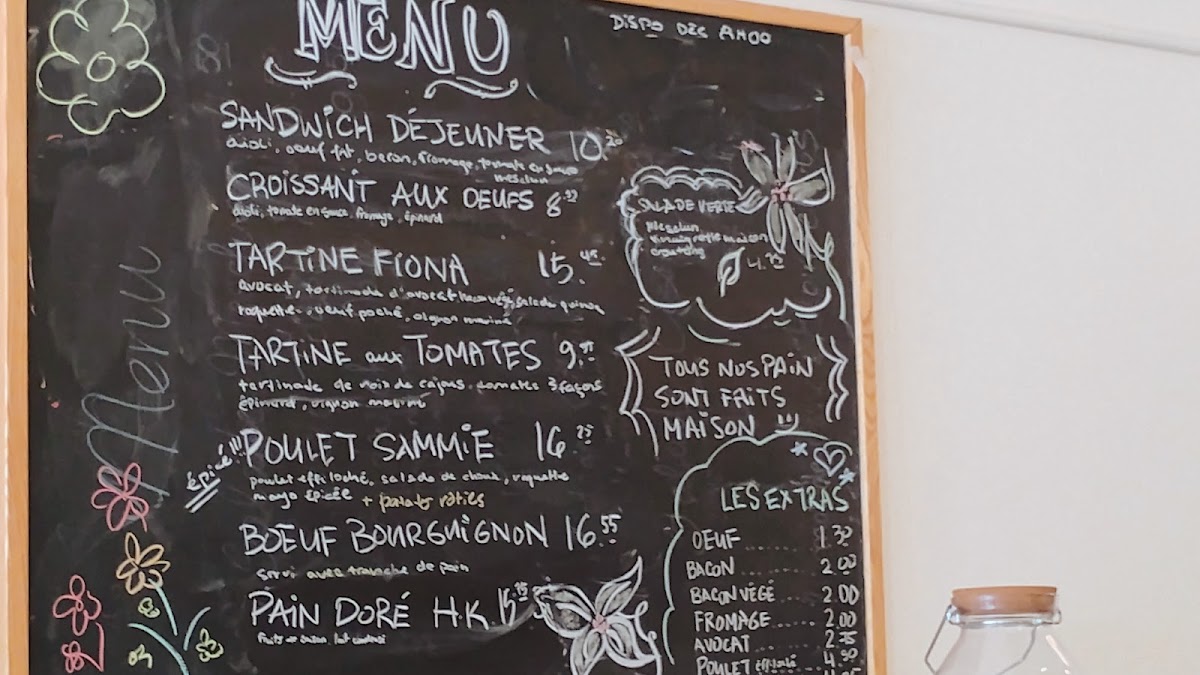 MENU
DISPO DÈS AHOO
SANDWICH DÉJEUNER 10.20
aioli, oeuf frit, bacon, fromage, tomate en sauce
mesclun
CROISSANT AUX OEUFS 8
aioli, tomate en sauce, fromage, épinard
TARTINE FIONA 15.45
avocat, tartinade d'avocat végé, salade quinoa
roquette, oeuf poché, oignon mariné
TARTINE aux TOMATES 9
tartinade de noix de cajous, tomates 3 façons
épinard, oignon mariné
épicé!!!
POULET SAMMIE 16.25
poulet effiloché, salade de choux, roquette
mayo épicée + patates rôties
BOEUF BOURGUIGNON 16.55
servi avec tranche de pain
PAIN DORÉ H.K.
Menu
SALADE VERTE
Mesclun
Vinaigrette maison
croutons
4.75
TOUS NOS PAIN
SONT FAITS
MAISON :)
LES EXTRAS
OEUF ...... 1.30
BACON ........ 2.00
BACON VÉGÉ ..... 2.00
FROMAGE ..... 2.00
AVOCAT ..... 2.75
POULET effiloché ... 4.50